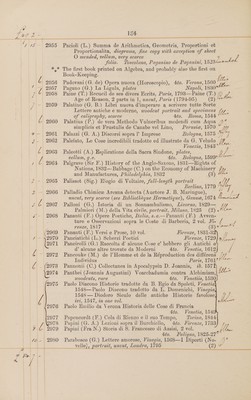 124
2655 Pacioli (L.) Summa de Arithmetica, Geometria, Proportioni et
Proportionalita, diagrams, fine copy with exception of sheet
O mended, vellum, very scarce
folio. Tusculano, Paganino de Paganini, 1523
*** The first book printed on Algebra, and probably also the first on
Book-Keeping.
2656 Padovani (G. de) Opera nuova (Horoscopio), 4to. Verona, 1560
2657 Pagano (G.) La Liguia, plates Napoli, 1808
2658 Paine (T.) Recueil de ses divers Ecrits, Paris, 1793—Paine (T.)
Age of Reason, 2 parts in 1, uncut, Paris (1794-95) (2)
2659 Palatino (G. B.) Libro nuovo d'imparare a scrivere tutte Sorte
Lettere antiche e moderne, woodcut portrait and specimens
of calligraphy, scarce 4to. Roma, 1544
2660 Paleotus (P.) de vera Methodo Valoretibus medendi cum Aqua
simplicis et Frustulis de Canabe vel Lino, Perusiæ, 1570
2661 Palazzi (G. A.) Discorsi sopra l' Imprese Bologna, 1575
2662 Palefato, Le Cose incredibili tradotte ed illustrate da G. Vitelio
Venetia, 1545
2663 Paleotti (A.) Esplicatione della Sacra Sindone, plates,
vellum, g.e. 4to. Bologna, 1599
2664 Palgrave (Sir F.) History of the Anglo-Saxons, 1831—Rights of
Nations, 1832—Babbage (C.) on the Economy of Machinery
and Manufactures, Philadelphia, 1832 (3)
2665 Palissot (Sig.) Elogio di Voltaire, full-length portrait
Berlino, 1779
2666 Palladio Chimian Arcana detecta (Auctore J. B. Maringue),
uncut, very scarce (see Bibliothèque Hermetique), Genuæ, 1674
2667 Palloni (G.) Istoria di un Sonnambulismo, Livorno, 1829—
Palmieri (M.) della Vita civile, portrait, Milano, 1825 (2)
2668 Pananti (F.) Opere Poetiche, Italia, s.a.—Pananti (F.) Avven-
ture e Osservazioni sopra le Coste di Barberia, 2 vol. Fi-
renze, 1817 (3)
2669 Pananti (F.) Versi e Prose, 10 vol. Firenze, 1824-25
2670 Panciatichi (L.) Scherzi Poetici Firenze, 1729
2671 Pancirolli (G.) Raccolta d' alcune Cose c' hebbero gli Antichi e
d' alcune altre trovate da Moderni 4to. Venetia, 1612
2672 Panconcke (M.) de l'Homme et de la Réproduction des différens
Individus Paris, 1761
2673 Pannonii (C.) Collectanea in Apocalypsin D. Joannis, ib. 1571
2674 Panthei (Joannis Augustini) Voarchadumia contra Alchimiam,
woodcuts, rare 4to. Venetiis, 1530
2675 Paolo Diacono Historie tradotte da B. Egio da Spoleti, Venetia,
1548—Paulo Diacono tradotto da L. Domenichi, Vinegia,
1548—Diodoro Siculo delle antiche Historie favolose,
ivi, 1547, in one vol.
2676 Paolo Emilio da Verona Historia delle Cose di Francia
4to. Venetia, 1549
2677 Paponnorth (F.) Cola di Rienzo e il suo Tempo, Torino, 1844
2678 Papini (G. A.) Lezioni sopra il Burchiello, 4to. Firenze, 1733
2679 Papini (Fra N.) Storia di S. Francesco di Assisi, 2 vol.
4to. Foligno, 1825-27
2680 Parabosco (G.) Lettere amorose, Vinegia, 1558—I Diporti (No-
velle), portrait, uncut, Londra, 1795 (2)